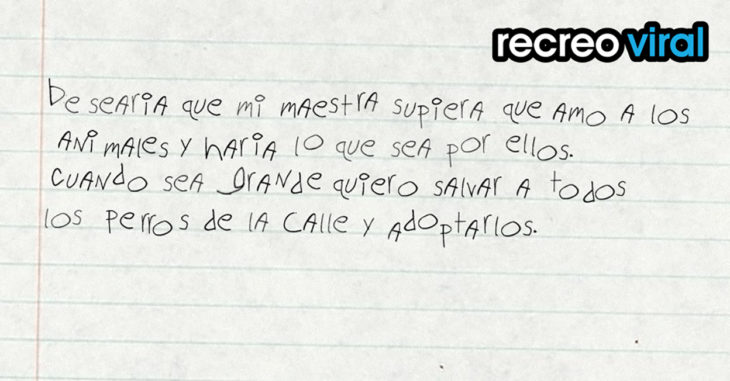 recreoviral
Desearia que mi maestra supiera que amo a los
animales y haria lo que sea por ellos.
cuando sea grande quiero salvar a todos
los perros de la calle y adoptarlos.